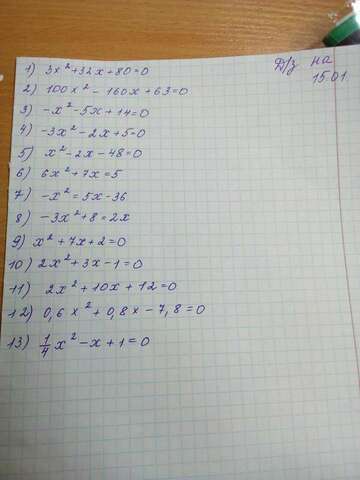 Д/з на
15.01
1) 3x²+32x+80=0
2) 100x² - 160x+63=0
3) -x²-5x+14=0
4) -3x²-2x+5=0
5) x²-2x-48=0
6) 6x²+7x=5
7) -x²=5x-36
8) -3x²+8=2x
9) x²+7x+2=0
10) 2x²+3x-1=0
11) 2x²+10x+12=0
12) 0,6x²+0,8x-7,8=0
13) 1/4 x²-x+1=0